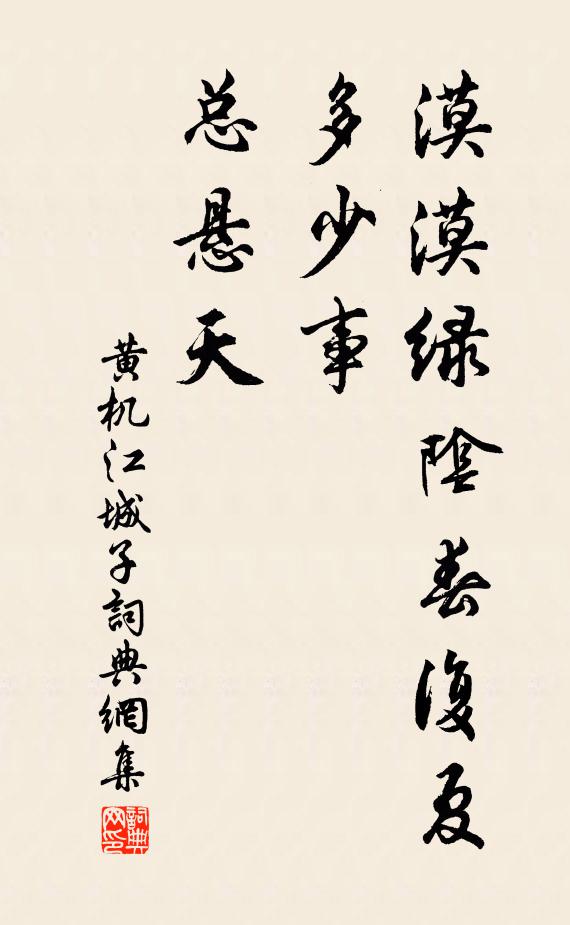 漠漠绿陰春復夏
多少事
总悬天
黄机江城子詞典網集
詞典
网印